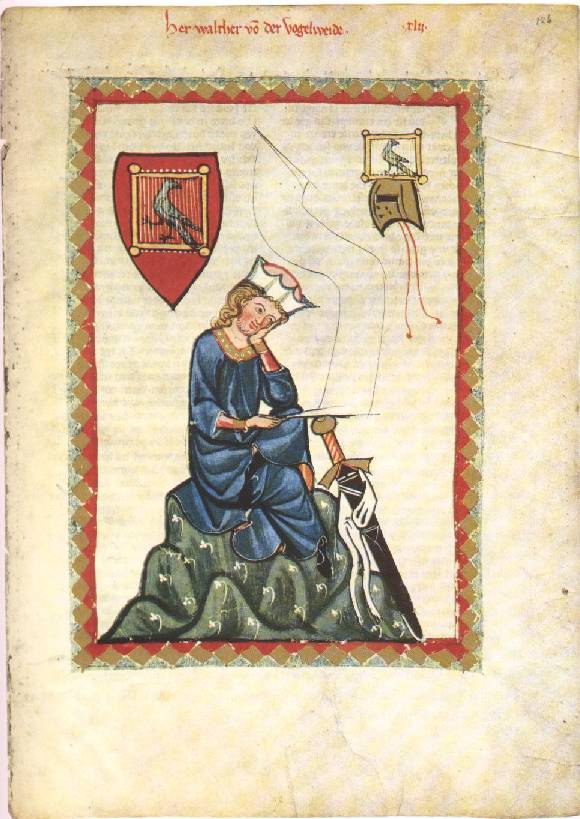 Her walther võ der Vogelweide. .xlii.